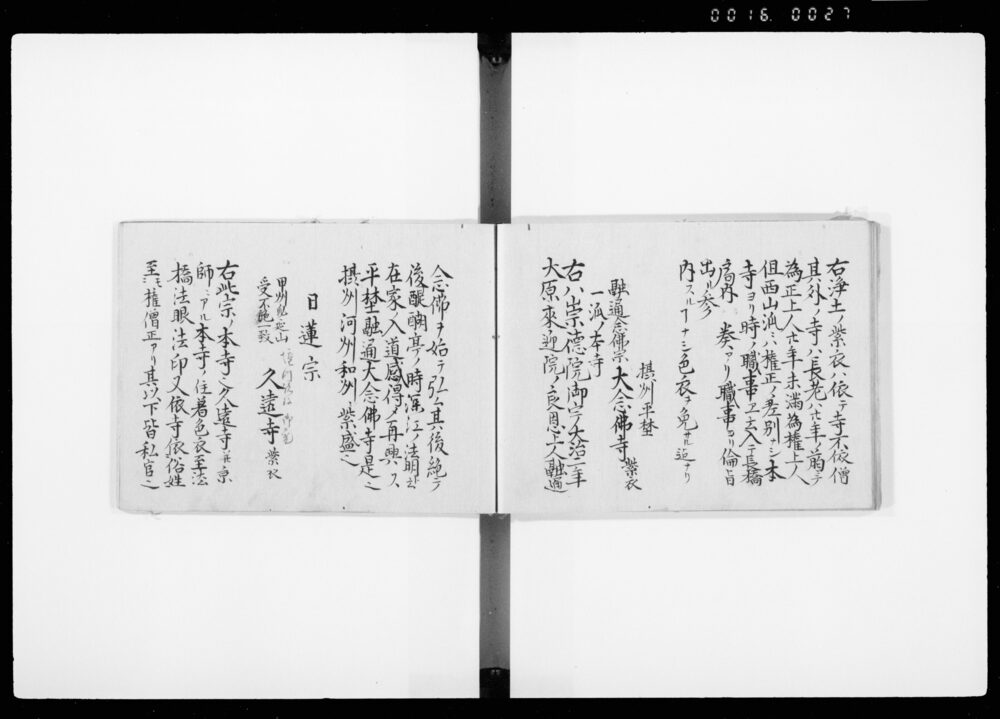 0016 0027
右浄土ノ紫衣ハ依テ寺不依僧
其外ノ寺ハ長老ハ廿年ノ前ヲ
為正上人廿年未満為権上人
但西山派ハ権正ノ差別ナシ本
寺ヨリ時ノ職事エ云入テ長橋
局内 奏アリ職事ヨリ倫旨
出ル参
内スルヿナシ色衣ヲ免せ迄ナリ
摂州平埜
融通念佛宗 大念佛寺 紫衣
一派ノ本寺
右ハ崇徳院御宇大治二年
大原来迎院ノ良忍上人融通
念佛ヲ始テ弘ム其後絶テ
後醍醐帝ノ時深江ノ法明ト云
在家ノ入道感得〆再興ス
平埜融通大念佛寺是之
摂州河州和州紫盛之
日蓮宗
甲州身延山 久遠寺 紫衣
受不施一致
右此宗ノ本寺之久遠寺ヰ京
師ニアル本寺ノ住着色衣至法
橋法眼法印又依寺依俗姓
至ニモ権僧正アリ其以下皆私官之